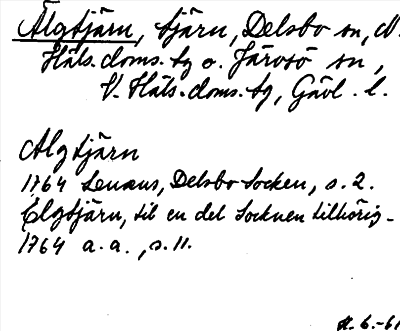 Älgtjärn, tjärn, Delsbo sn, N.
Häls. doms. tg o. Järvsö sn,
V. Häls. doms. tg, Gävl. l.
Algtjärn
1764 Lenæus, Delsbo Socken, s. 2.
Elgtjärn, til en del Socknen tillhörig -
1764 a. a., s. 11.